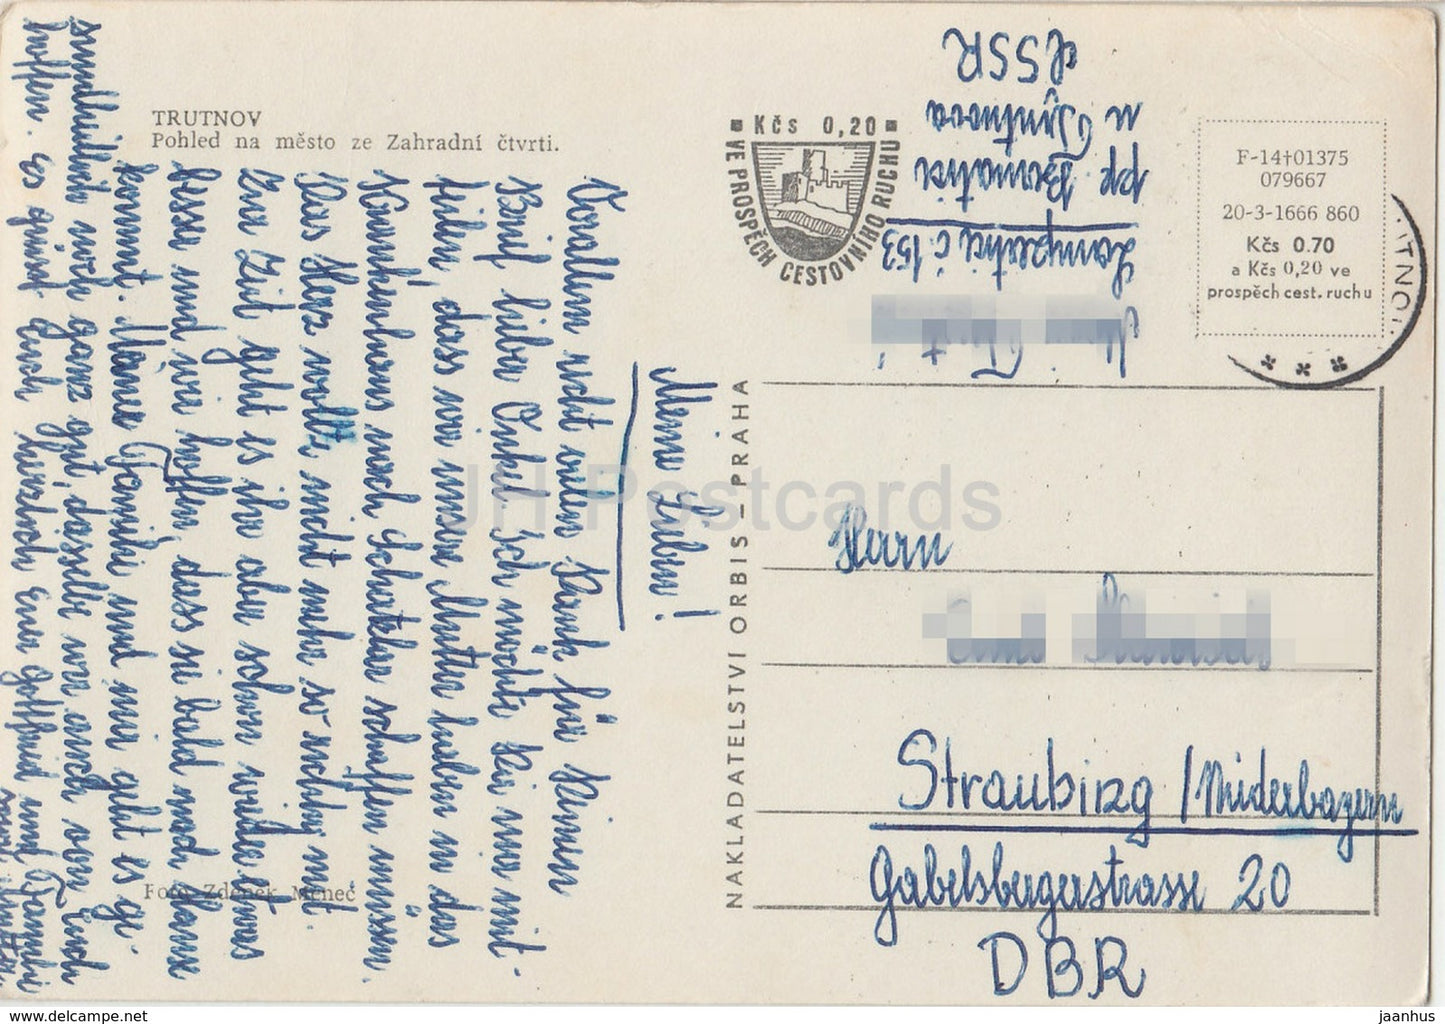 TRUTNOV
Pohled na město ze Zahradní čtvrti.
Meine Lieben!
Vorallem recht vielen Dank für Deinen
Brief, lieber Onkel. Ich möchte Dir nur mit-
teilen, dass wir unsere Mutter haben in das
Krankenhaus nach Schatzlar schaffen müssen.
Das Herz wollte nicht mehr so richtig mit.
Zur Zeit geht es ihr aber schon wieder etwas
besser und wir hoffen, dass sie bald nach Hause
kommt. Meiner Familie und mir geht es ge-
sundheitlich noch ganz gut, dasselbe wir auch von Euch
hoffen. Es grüsst Euch herzlich Eure und Familie
Foto Zdeněk Meneč
NAKLADATELSTVÍ ORBIS – PRAHA
Kčs 0,20
VE PROSPĚCH CESTOVNÍHO RUCHU
č. 153
pp. Bernatice
u Trutnova
ČSSR
F-14†01375
079667
20-3-1666 860
Kčs 0.70
a Kčs 0,20 ve
prospěch cest. ruchu
Herrn
Straubing / Niederbayern
Gabelsbergerstrasse 20
DBR
JH Postcards
delcampe.net
jaanhus